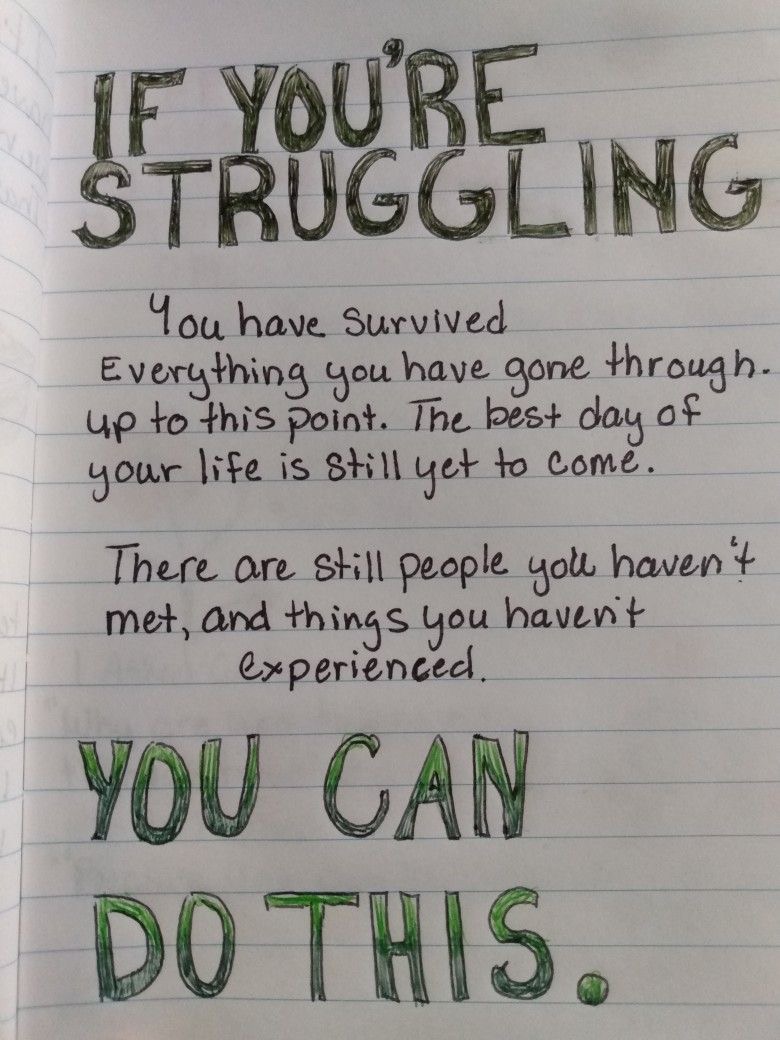 IF YOU'RE
STRUGGLING
You have survived
Everything you have gone through.
up to this point. The best day of
your life is still yet to come.
There are still people you haven't
met, and things you haven't
experienced.
YOU CAN
DO THIS.